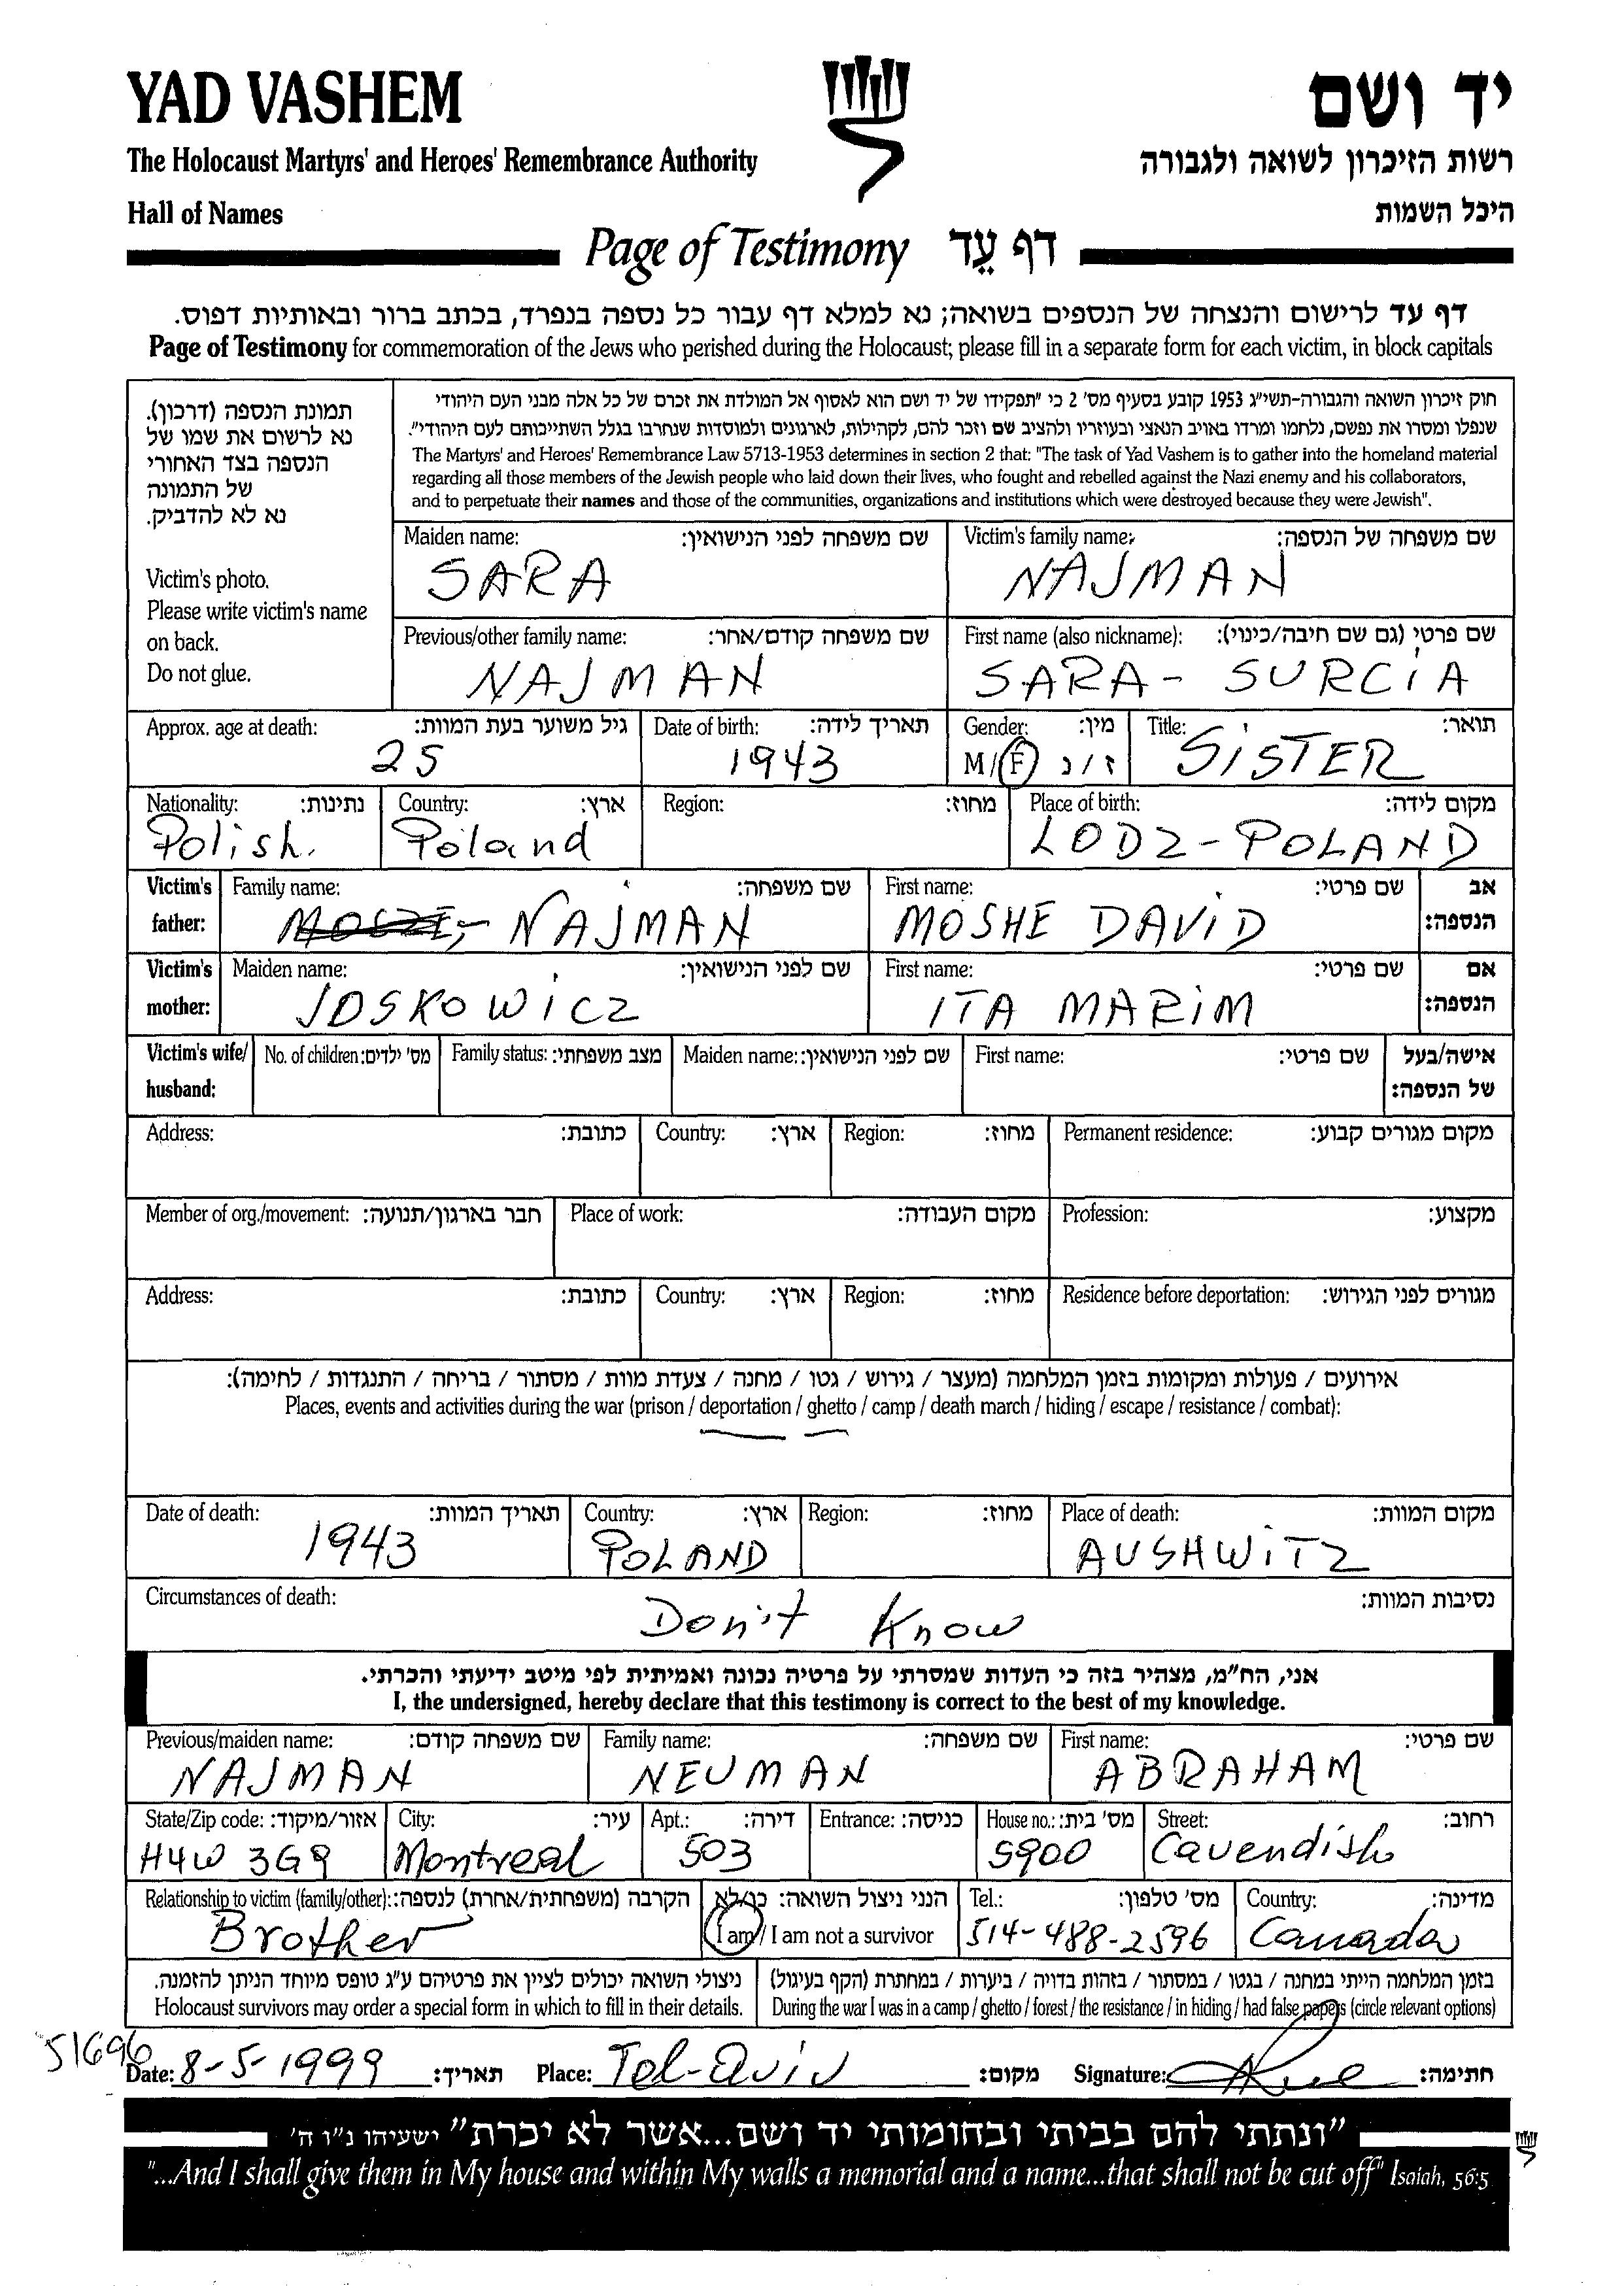 YAD VASHEM
יד ושם
The Holocaust Martyrs' and Heroes' Remembrance Authority
רשות הזיכרון לשואה ולגבורה
Hall of Names
היכל השמות
Page of Testimony דף עֵד
דף עד לרישום והנצחה של הנספים בשואה; נא למלא דף עבור כל נספה בנפרד, בכתב ברור ובאותיות דפוס.
Page of Testimony for commemoration of the Jews who perished during the Holocaust; please fill in a separate form for each victim, in block capitals
תמונת הנספה (דרכון).
נא לרשום את שמו של
הנספה בצד האחורי
של התמונה
נא לא להדביק.
Victim's photo.
Please write victim's name
on back.
Do not glue.
חוק זיכרון השואה והגבורה-תשי״ג 1953 קובע בסעיף מס' 2 כי "תפקידו של יד ושם הוא לאסוף אל המולדת את זכרם של כל אלה מבני העם היהודי
שנפלו ומסרו את נפשם, נלחמו ומרדו באויב הנאצי ובעוזריו ולהציב שם וזכר להם, לקהילות, לארגונים ולמוסדות שנחרבו בגלל השתייכותם לעם היהודי".
The Martyrs' and Heroes' Remembrance Law 5713-1953 determines in section 2 that: "The task of Yad Vashem is to gather into the homeland material
regarding all those members of the Jewish people who laid down their lives, who fought and rebelled against the Nazi enemy and his collaborators,
and to perpetuate their names and those of the communities, organizations and institutions which were destroyed because they were Jewish".
Maiden name: שם משפחה לפני הנישואין: Victim's family name: שם משפחה של הנספה:
SARA NAJMAN
Previous/other family name: שם משפחה קודם/אחר: First name (also nickname): שם פרטי (גם שם חיבה/כינוי):
NAJMAN SARA - SURCIA
Approx. age at death: גיל משוער בעת המוות: Date of birth: תאריך לידה: Gender: מין: Title: תואר:
25 1943 M/F ז/נ SISTER
Nationality: נתינות: Country: ארץ: Region: מחוז: Place of birth: מקום לידה:
Polish. Poland LODZ - POLAND
Victim's father: Family name: שם משפחה: First name: שם פרטי: אב הנספה:
NAJMAN MOSHE DAVID
Victim's mother: Maiden name: שם לפני הנישואין: First name: שם פרטי: אם הנספה:
JOSKOWICZ ITA MARIM
Victim's wife/ husband: No. of children: מס' ילדים: Family status: מצב משפחתי: Maiden name: שם לפני הנישואין: First name: שם פרטי: אישה/בעל של הנספה:
Address: כתובת: Country: ארץ: Region: מחוז: Permanent residence: מקום מגורים קבוע:
Member of org./movement: חבר בארגון/תנועה: Place of work: מקום העבודה: Profession: מקצוע:
Address: כתובת: Country: ארץ: Region: מחוז: Residence before deportation: מגורים לפני הגירוש:
אירועים / פעולות ומקומות בזמן המלחמה (מעצר / גירוש / גטו / מחנה / צעדת מוות / מסתור / בריחה / התנגדות / לחימה):
Places, events and activities during the war (prison / deportation / ghetto / camp / death march / hiding / escape / resistance / combat):
Date of death: תאריך המוות: Country: ארץ: Region: מחוז: Place of death: מקום המוות:
1943 POLAND AUSHWITZ
Circumstances of death: נסיבות המוות:
Don't Know
אני, הח״מ, מצהיר בזה כי העדות שמסרתי על פרטיה נכונה ואמיתית לפי מיטב ידיעתי והכרתי.
I, the undersigned, hereby declare that this testimony is correct to the best of my knowledge.
Previous/maiden name: שם משפחה קודם: Family name: שם משפחה: First name: שם פרטי:
NAJMAN NEUMAN ABRAHAM
State/Zip code: אזור/מיקוד: City: עיר: Apt.: דירה: Entrance: כניסה: House no.: מס' בית: Street: רחוב:
H4W 3G9 Montreal 503 5900 Cavendish
Relationship to victim (family/other): הקרבה (משפחתית/אחרת) לנספה: הנני ניצול השואה: כן/לא Tel.: מס' טלפון: Country: מדינה:
Brother I am / I am not a survivor 514-488-2596 Canada
ניצולי השואה יכולים לציין את פרטיהם ע״ג טופס מיוחד הניתן להזמנה.
Holocaust survivors may order a special form in which to fill in their details.
בזמן המלחמה הייתי במחנה / בגטו / במסתור / בזהות בדויה / ביערות / במחתרת (הקף בעיגול)
During the war I was in a camp / ghetto / forest / the resistance / in hiding / had false papers (circle relevant options)
51696
Date: 8-5-1999 תאריך: Place: Tel-Aviv מקום: Signature: חתימה:
"ונתתי להם בביתי ובחומותי יד ושם...אשר לא יכרת" ישעיהו נ״ו ה'
"...And I shall give them in My house and within My walls a memorial and a name...that shall not be cut off" Isaiah, 56:5